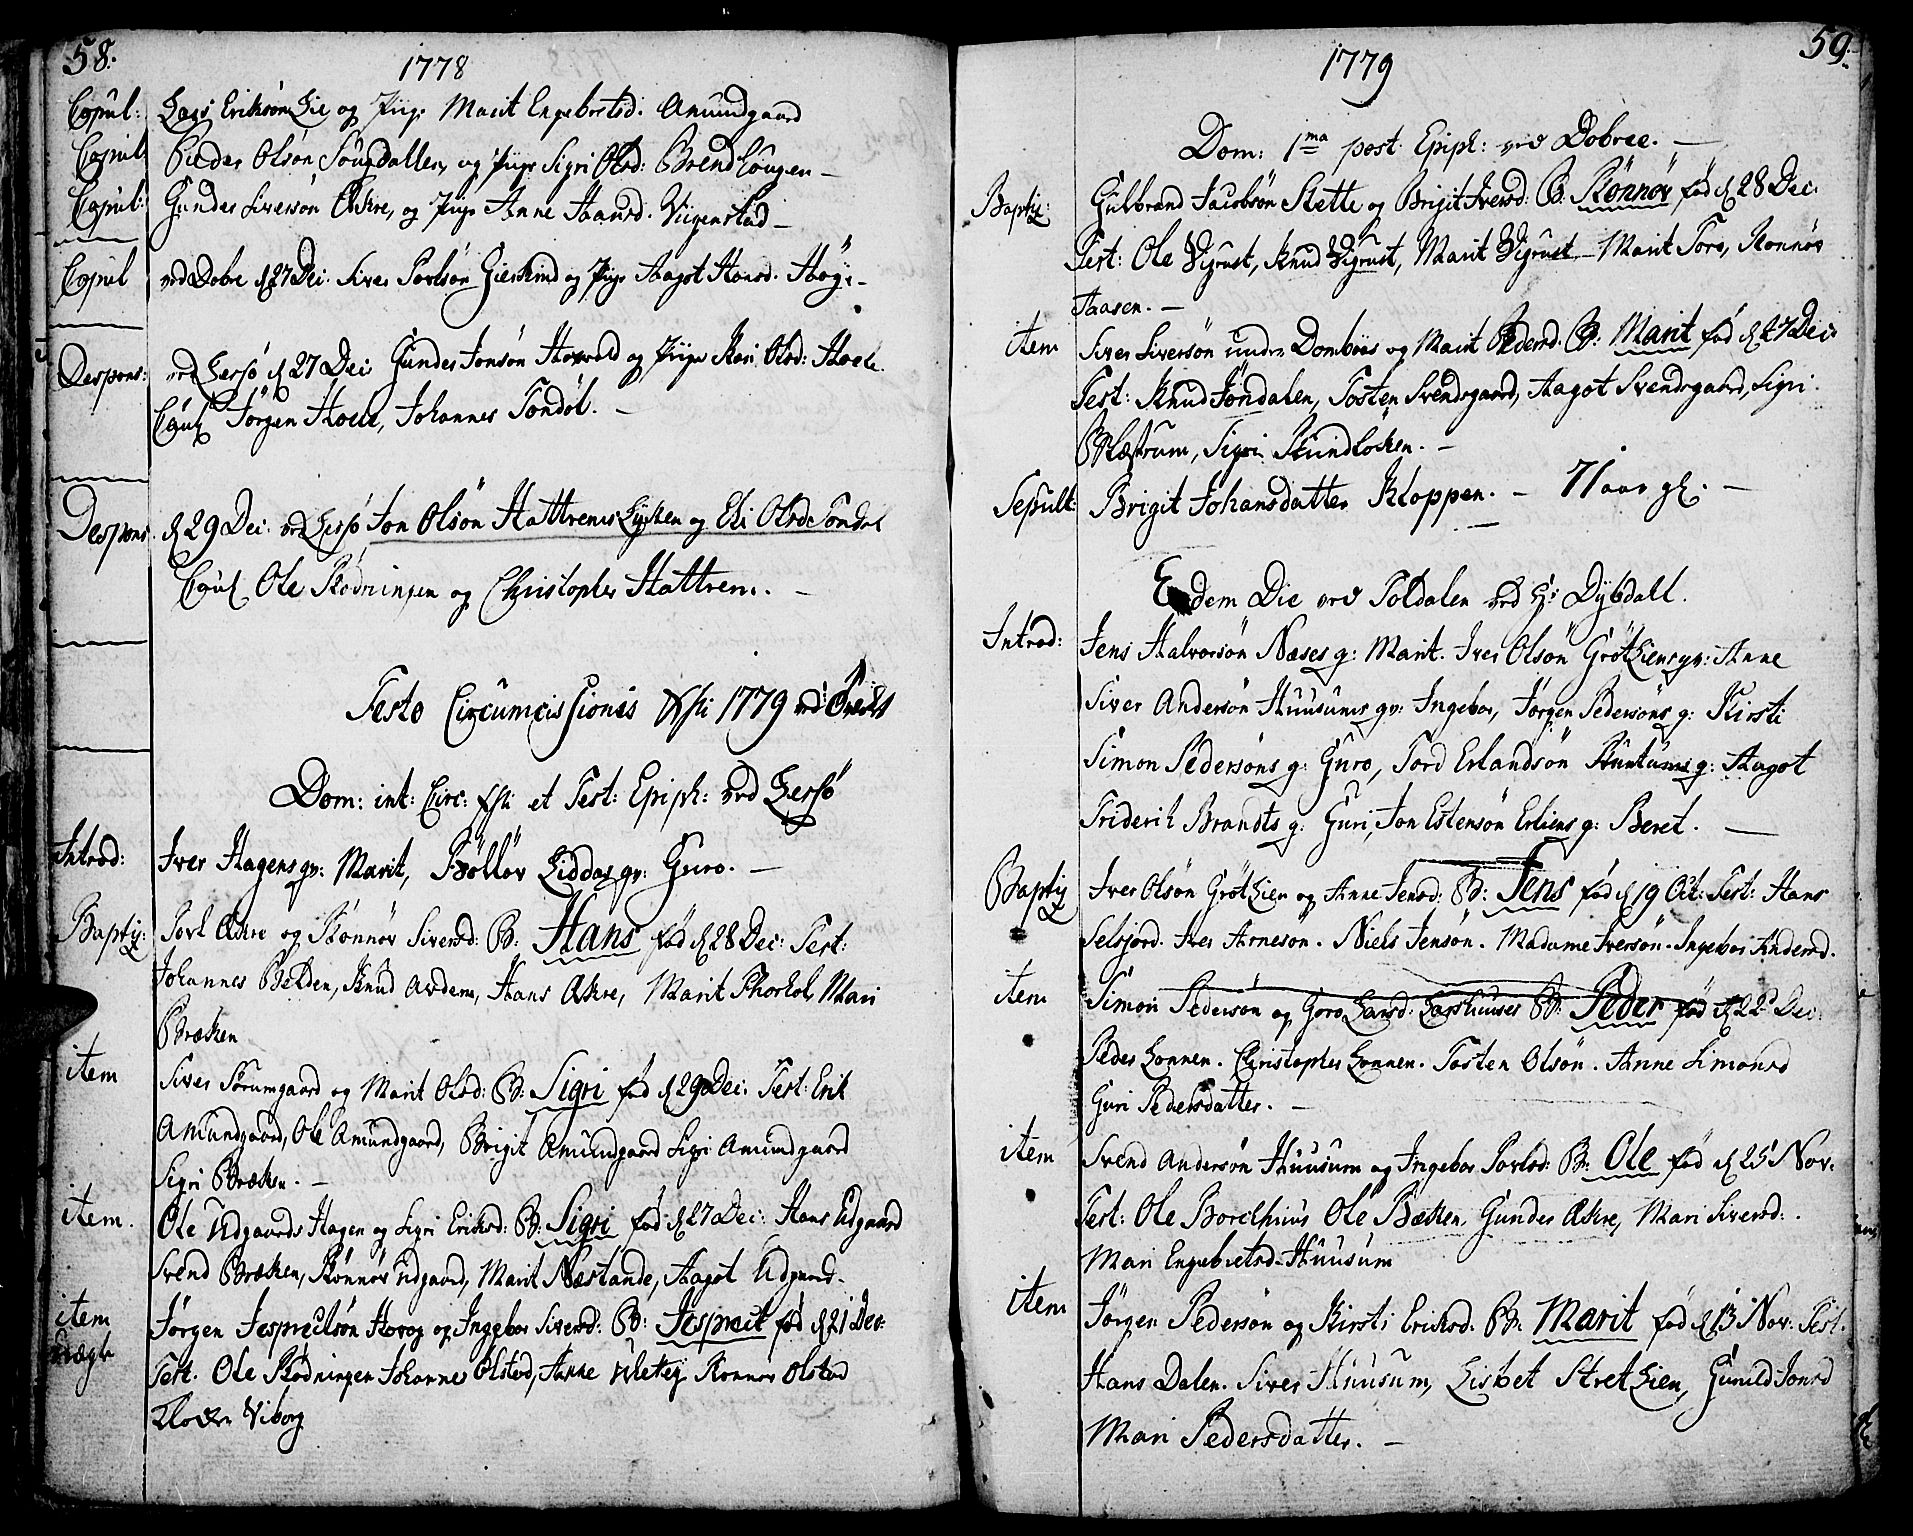 58.
1778
Copul: Lars Eriksøn Lie og Pige Marit Engebretsd: Amundgaard
Copul Peder Olsøn og Pige Sigri Olsd: Brendhougen —
Copul: Gunder Siversøn Ækre, og Pige Anne Hansd. Viigenstad —
Copul ved Dobre d 27 Dec: Siver Povlsøn og Pige Aagot Hansd.
Despons: ved Lessø d 27 Dec: Gunder Jonsøn og Pige Kari Olsd: Hoele.
Caut Jørgen Hoele, Johannes Tondøl. —
Despons. d 29 Dec: ved Lessø Jon Olsøn Hattrems og Eli Olsd: Tondøl
Caut Ole Rødningen og Christopher Hattrem. —
Festo Circumcissionis Xsti 1779 ved
Dom: int: Circ: Xsti et Fest: Epiph: ved Lessø
Introd: Iver Hagens qv: Marit, Bølløv Liddas qv: Guro. —
Baptiz: Povl Ækre og Rønnøv Siversd: B: Hans fød d 28 Dec: Test:
Johannes Belden, Knud Avdem, Hans Ækre, Marit Mari
Brækken
item Siver Sørumgaard og Marit Olsd: B: Sigri fød d 29 Dec: Test: Erik
Amundgaard, Ole Amundgaard, Brigit Amundgaard Sigri Amundgaard
Sigri Brækken. —
item. Ole Udgaards Hagen og Sigri Eriksd: B: Sigri fød d 27 Dec: Hans Udgaard
Svend Brækken, Rønnøv Udgaard, Marit Næstande, Aagot Udgaard.
item Jørgen Jespersøn og Ingebor Siversd: B: fød d 21 Dec:
Test. Ole Rødningen Johannes Ølstad, Anne Ronnøv Ølstad
Viborg
59.
1779
Dom: 1ma post Epiph: ved Dobree. —
Baptiz: Gulbrand Jacobsøn Slette og Brigit Iversd: B: Rønnøv fød d 28 Dec:
Test: Ole Vigrust, Knud Vigrust, Marit Vigrust — Marit Toro, Ronnøv
Haasen. —
item Siver Siversøn under Dombaas og Marit Pedersd. B: Marit fød d 27 Dec:
Test: Knud Jøndalen, Tosten Svendsgaard, Aagot Svendsgaard, Sigri
Sigri —
Sepult: Brigit Johansdatter Kloppen. — 71 aar gl. —
Eodem Die ved Foldalen ved Hr Dybdall.
Introd: Jens Halvorsøn Næses q: Marit. Iver Olsøn Grøtliens qv: Anne
Siver Andersøn Huusums qv: Ingebor, Jørgen Pedersøns q: Kirsti
Simon Pedersøns q: Guro, Tord Erlandsøn q: Aagot
Friderik Brandts q: Guri, Jon Estensøn Erliens q: Beret. —
Baptiz Iver Olsøn Grøtlien og Anne Jensd: B: Jens fød d 19 Oct: Test: Hans
Selsjord. Iver Arnesøn. Niels Jensøn. Madame Iversøn. Ingebor Andersd.
item Simon Pedersøn og Goro Larsd: B: Peder fød d 22 Dec:
Peder Lonnen. Christopher Lonnen. Tosten Olsøn. Anne Simonsd
Guri Pedersdatter. —
item Svend Andersøn Huusum og Ingebor Povlsd: B: Ole fød d 25 Nov:
Test: Ole Borchuus Ole Bækken, Gunder Ækre, Mari Siversd:
Mari Engebretsd. Huusum
item Jørgen Pedersøn og Kirsti Eriksd. B: Marit fød d 13 Nov: Test.
Hans Dalen. Siver Huusum, Lisbet Stretlien, Gunild Jonsd
Mari Pedersdatter. —